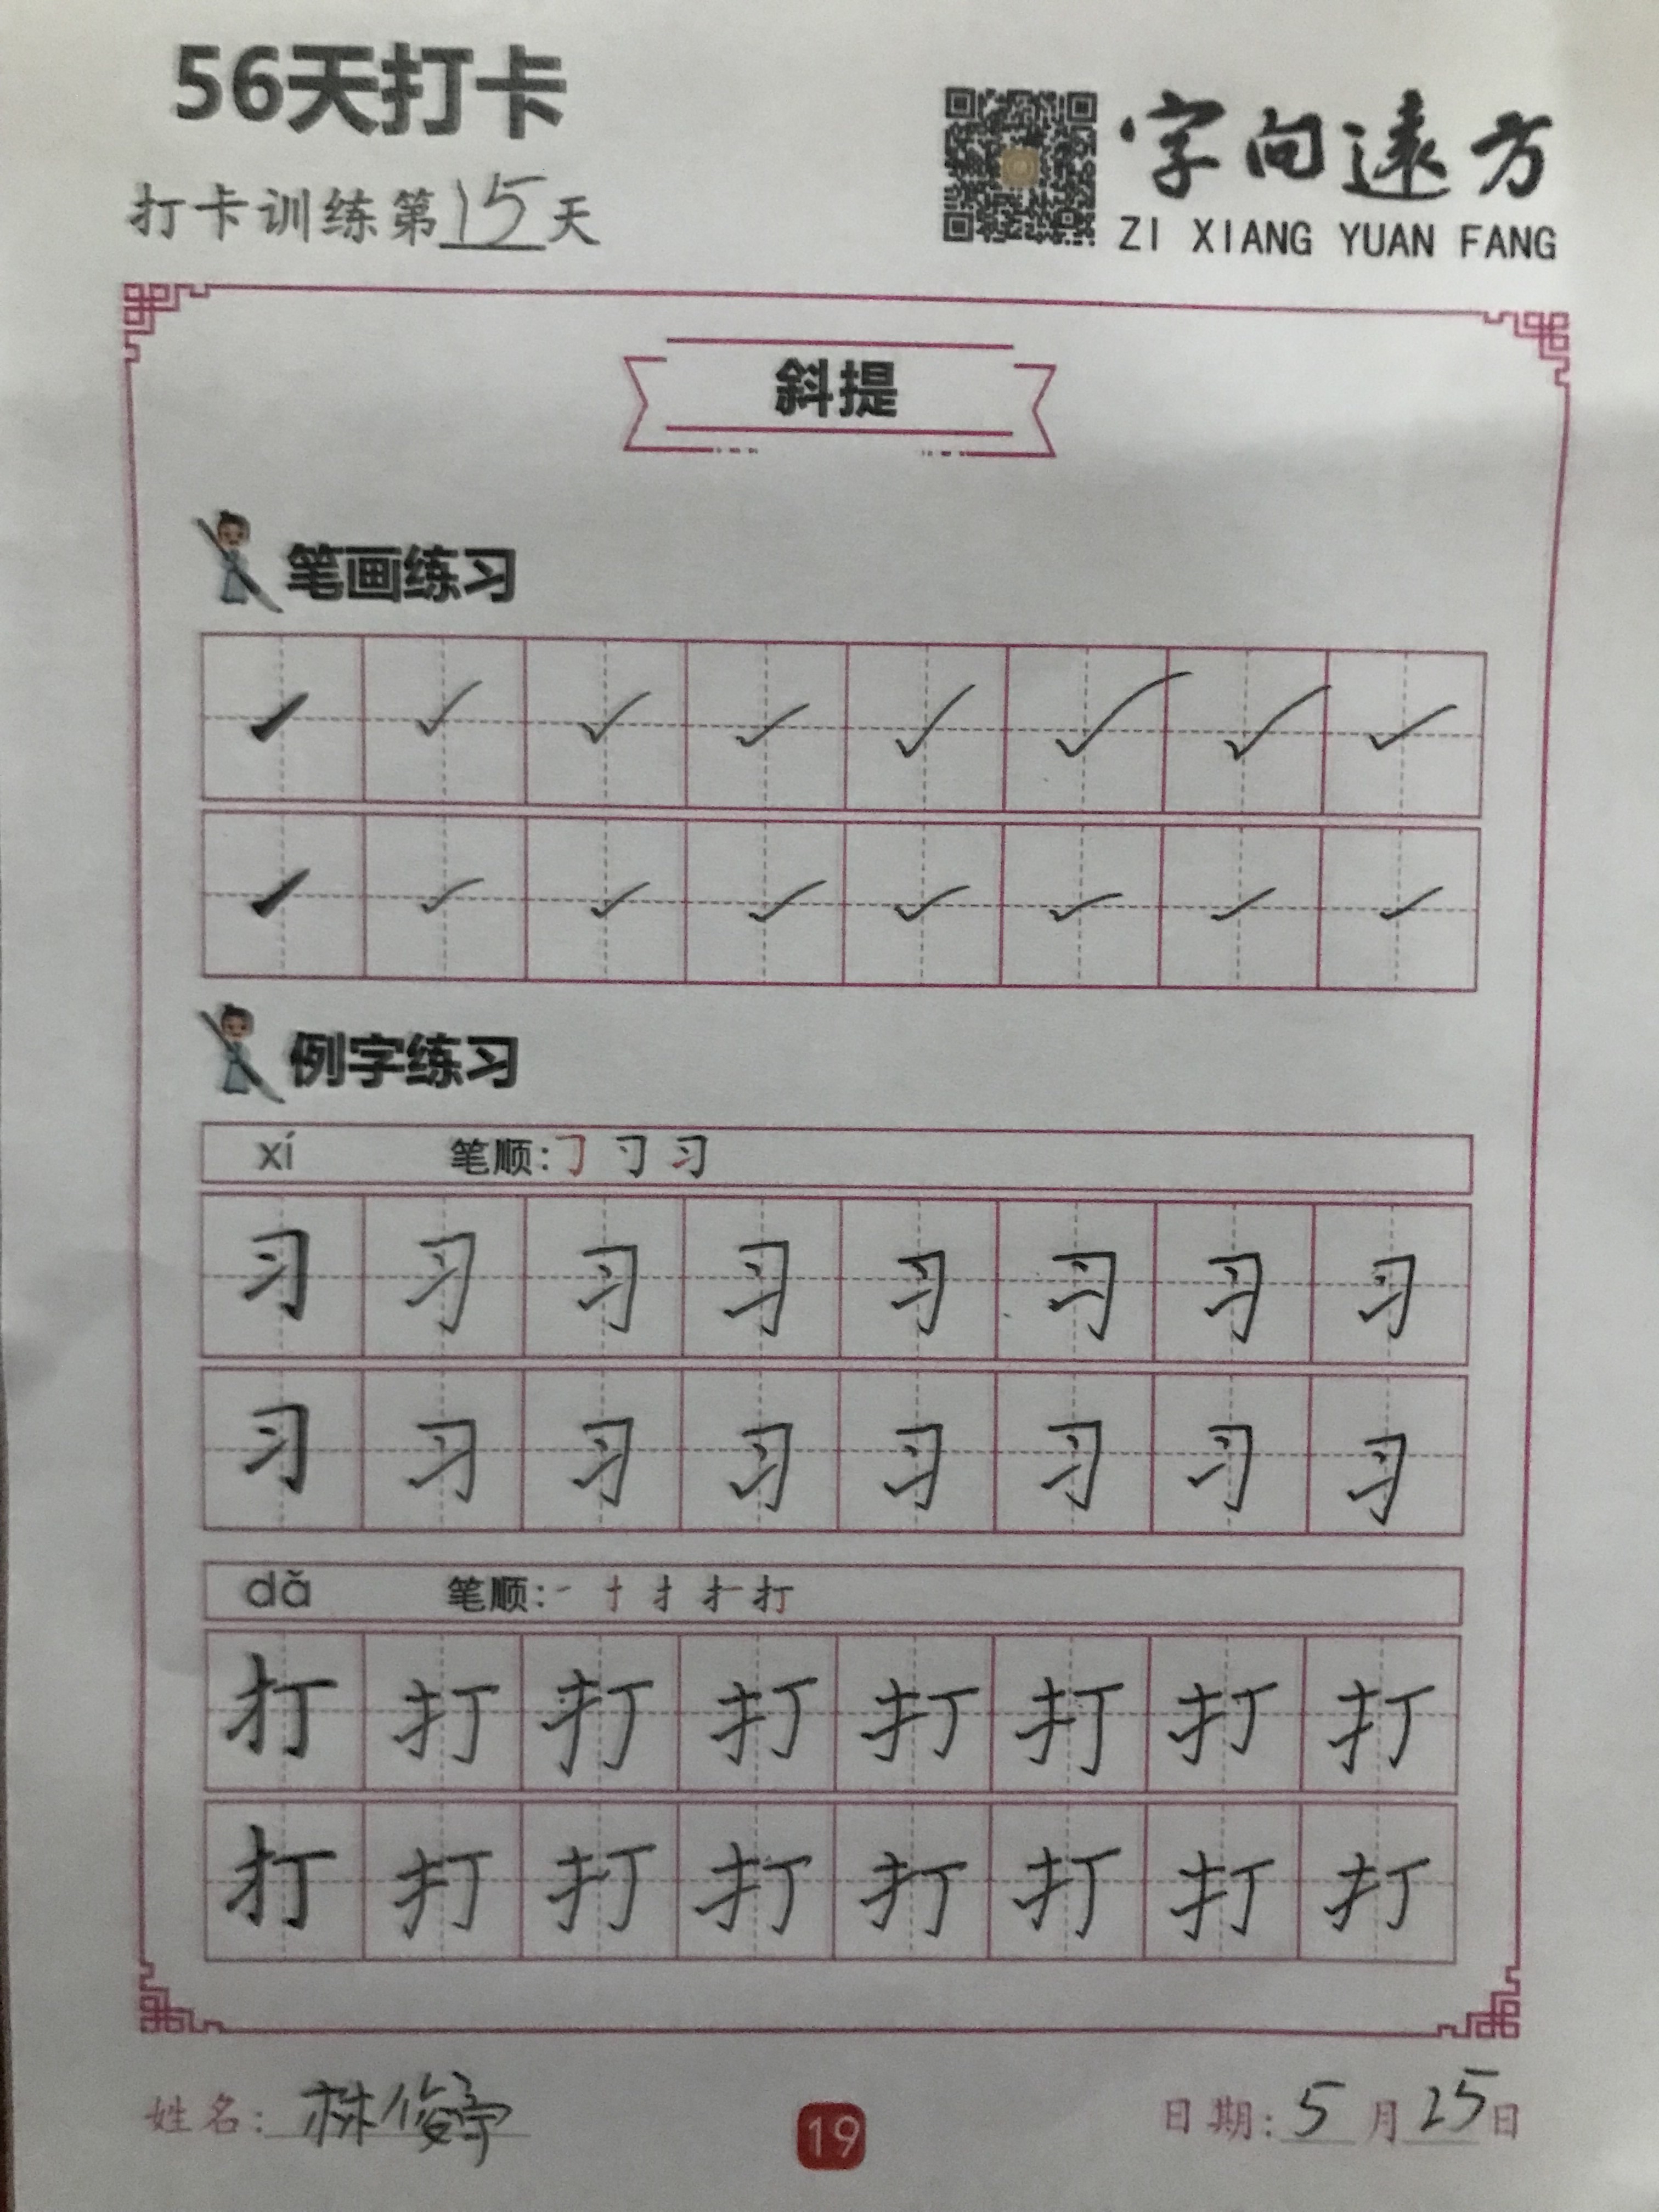 56天打卡
打卡训练第15天
字向遠方
ZI XIANG YUAN FANG
斜提
笔画练习
例字练习
xí 笔顺:㇆ 刁 习
习 习 习 习 习 习 习 习
习 习 习 习 习 习 习 习
dǎ 笔顺:一 十 扌 扌一 打
打 打 打 打 打 打 打 打
打 打 打 打 打 打 打 打
姓名: 林俊
19
日期: 5 月 25 日